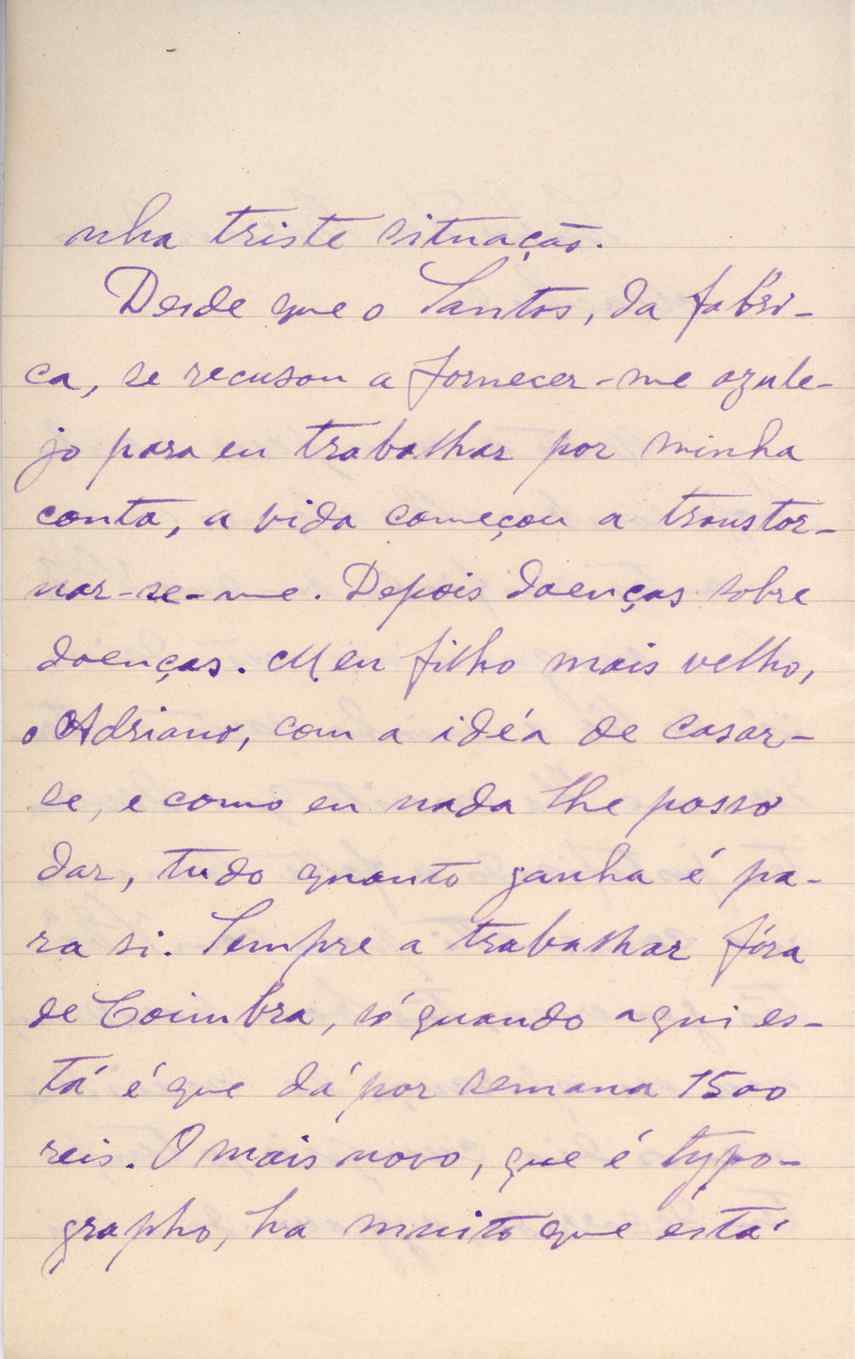 nha triste situação.
Desde que o Santos, da fabri-
ca, se recusou a fornecer-me azule-
jo para eu trabalhar por minha
conta, a vida começou a transtor-
nar-se-me. Depois doenças sobre
doenças. Meu filho mais velho,
o Adriano, com a idéa de casar-
se, e como eu nada lhe posso
dar, tudo quanto ganha é pa-
ra si. Sempre a trabalhar fóra
de Coimbra, só quando aqui es-
tá é que dá por semana 1500
reis. O mais novo, que é typo-
grapho, ha muito que está